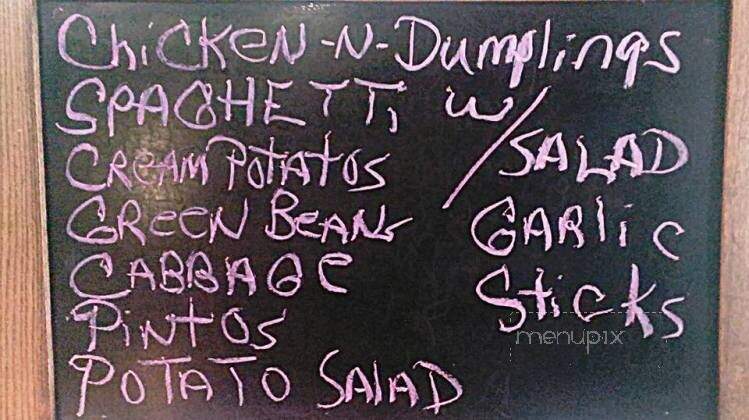 ChiCKeN-N-Dumplings
SPAGHETTi w/ SALAD
GARLic
Sticks
CReAM POTATOS
GReeN BeANs
CABBAGe
PiNTOS
POTATO SALAD
menupix